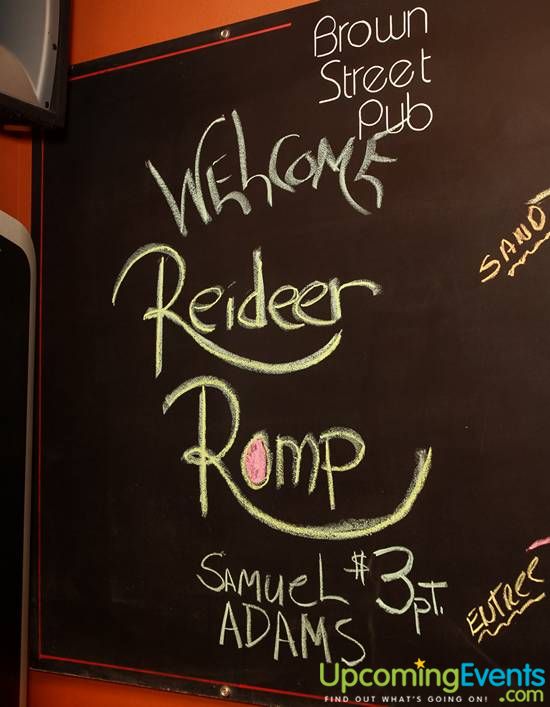 Brown
Street
Pub
WELCOME
Reideer
Romp
SAMUEL $3pt.
ADAMS
SAND
ENTREE
UpcomingEvents.com
FIND OUT WHAT'S GOING ON!